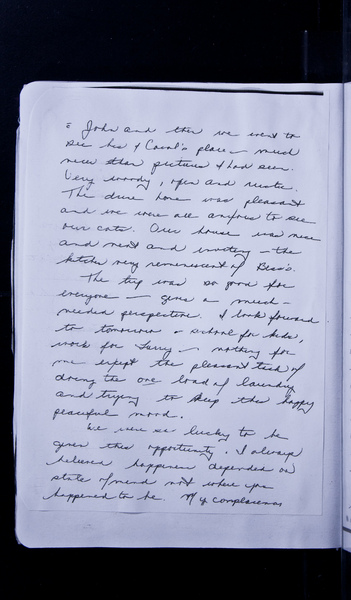 John and then we went to
see his & Carol's place – much
nicer than pictures I had seen.
Very woody, open and rustic.
The drive home was pleasant
and we were all anxious to see
our cats. Our house was nice
and neat and inviting – the
kitchen very reminiscent of Bess's.
The trip was so good for
everyone – gives a much-
needed perspective. I look forward
to tomorrow – school for kids,
work for Terry – nothing for
me except the pleasant task of
doing the one load of laundry
and trying to keep this happy
peaceful mood.
We were so lucky to be
given this opportunity. I always
believed happiness depended on
state of mind not where you
happened to be. My